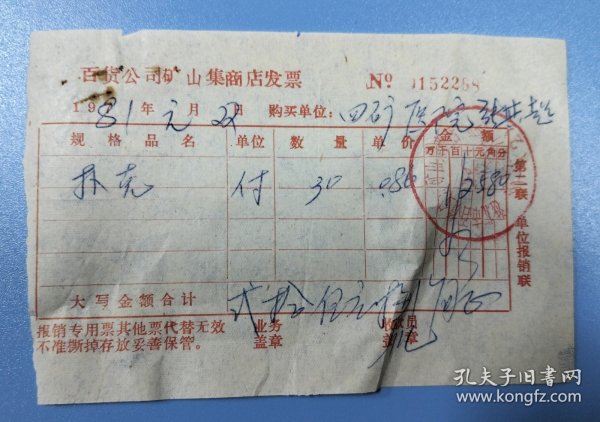 百货公司矿山集商店发票 № 0152288
1981年元月22日 购买单位：四矿医院
规格品名 单位 数量 单价 金额
万千百十元角分
扑克 付 30 0.86 2580
大写金额合计 贰拾伍元捌角正
第二联 单位报销联
报销专用票其他票代替无效 业务 收款员
不准撕掉存放妥善保管。 盖章 盖章
孔夫子旧书网
www.kongfz.com